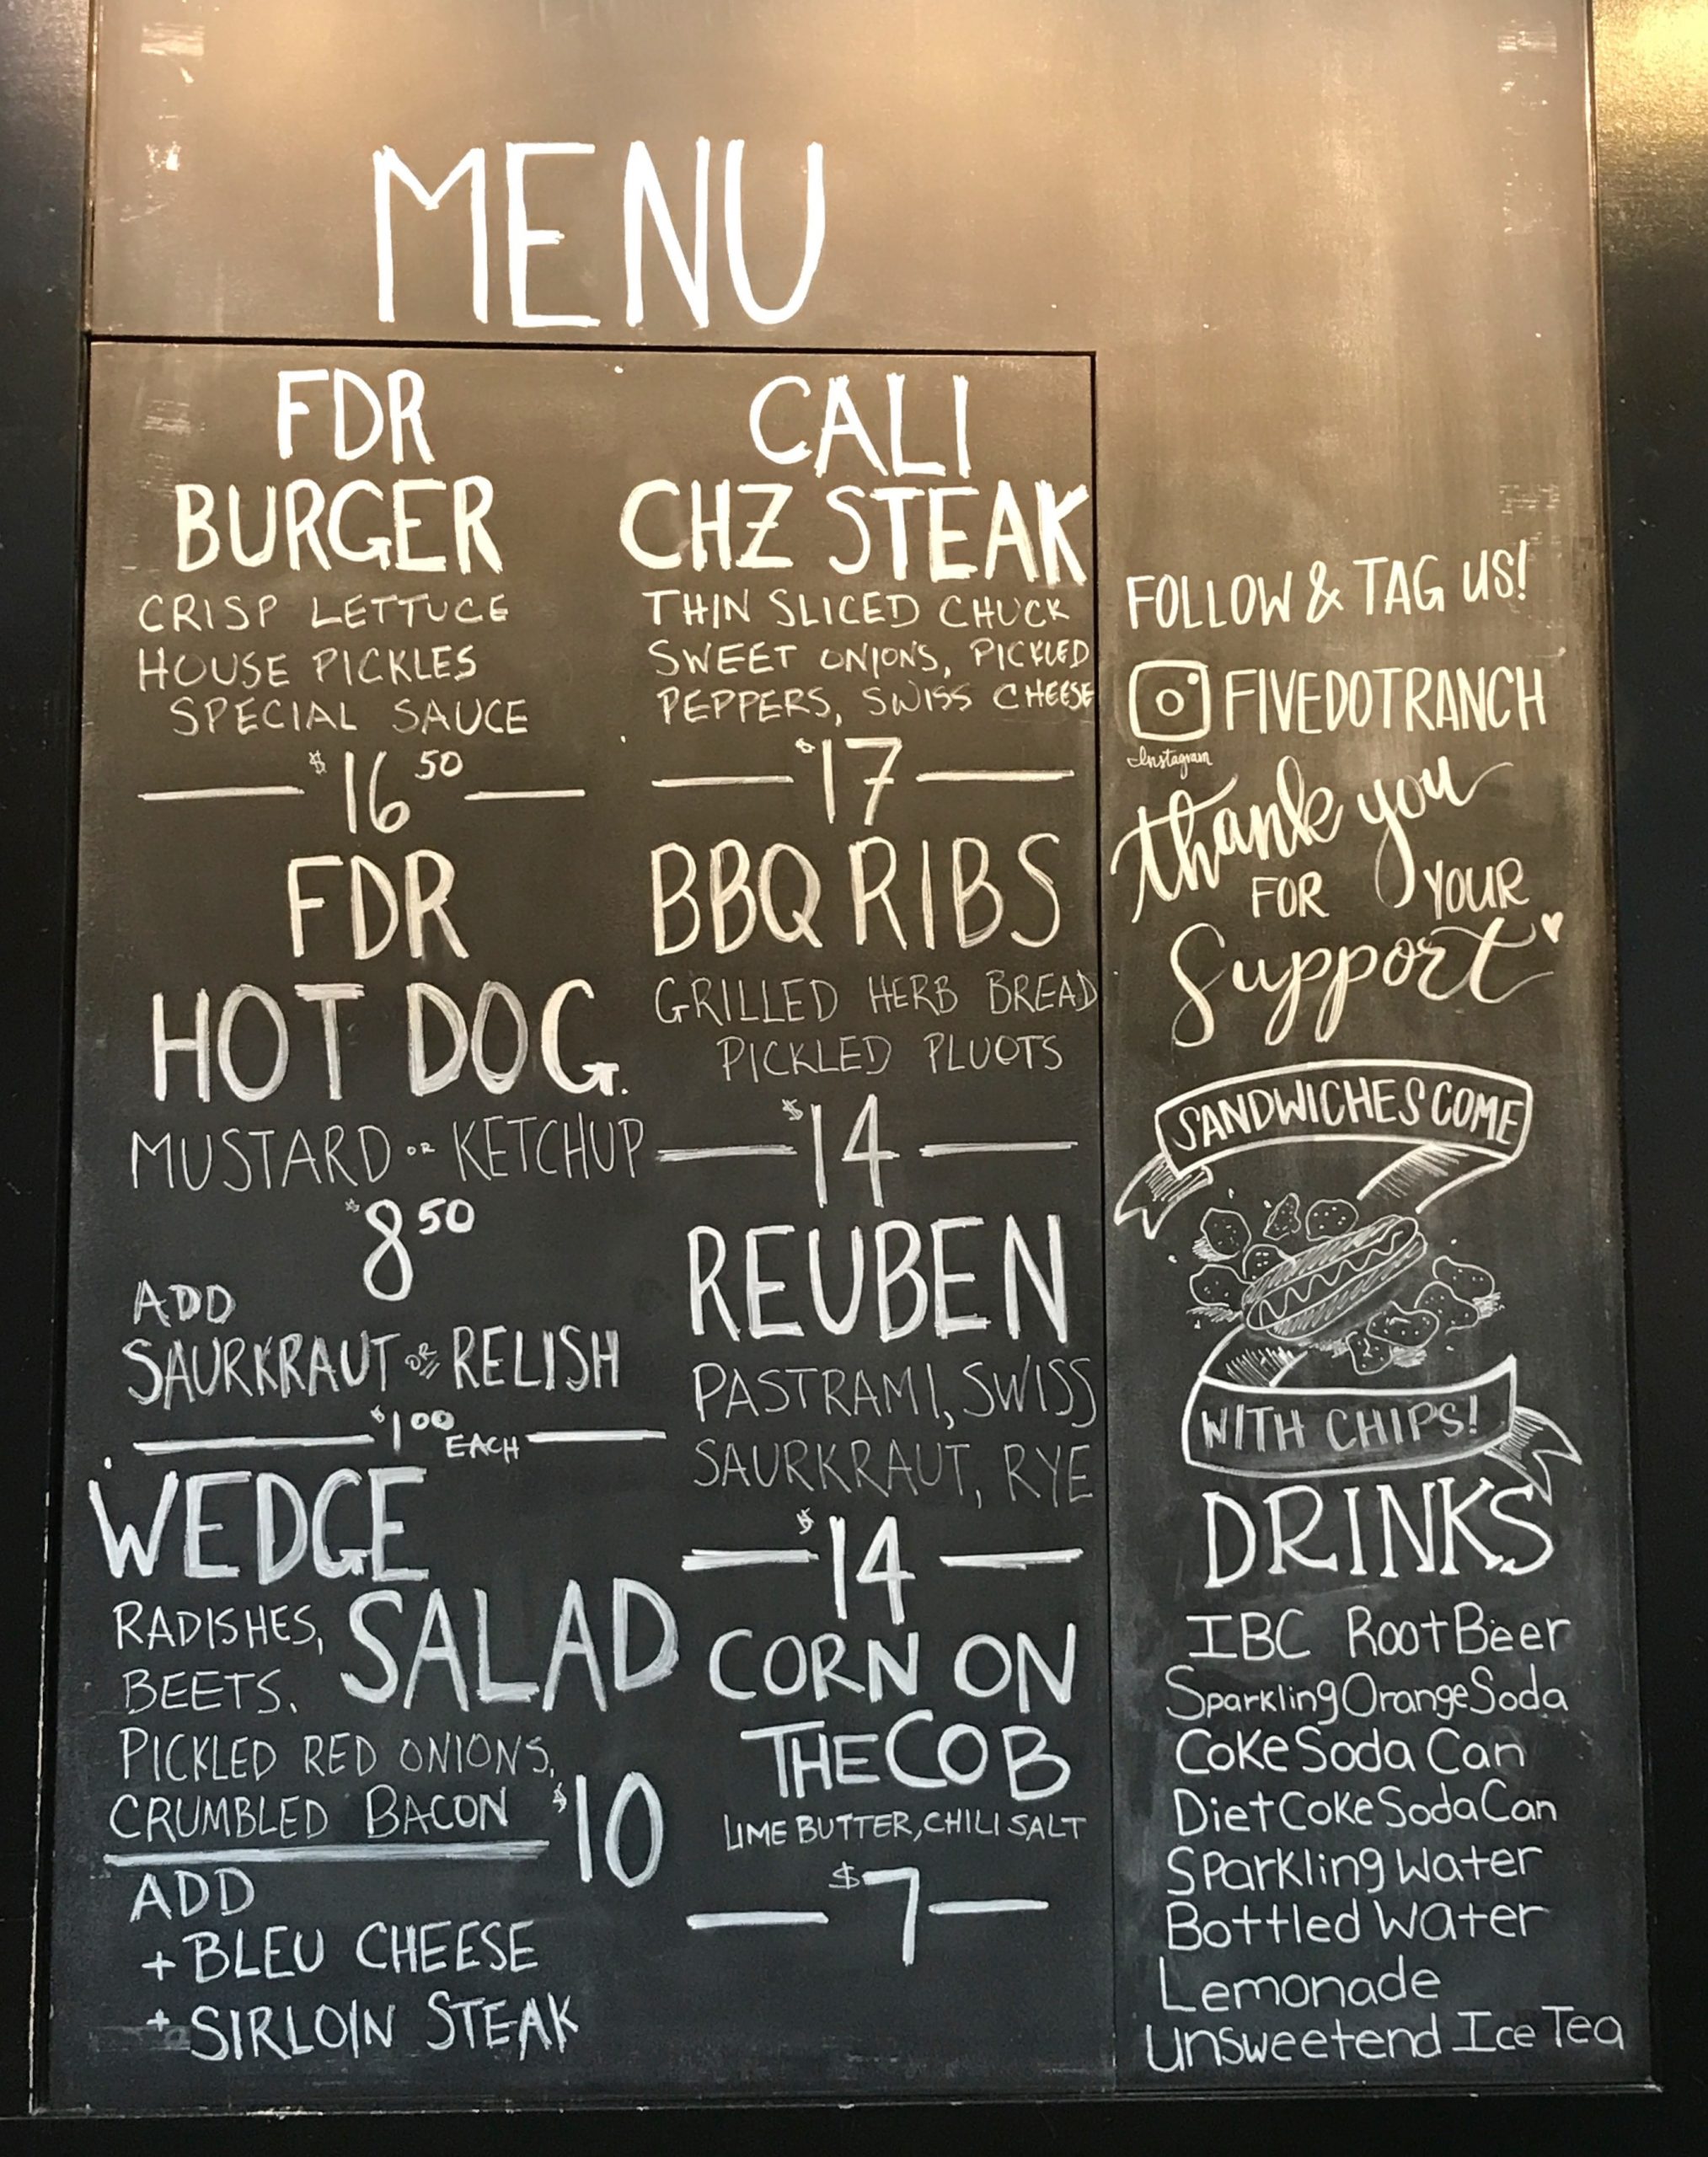 MENU
FDR
BURGER
CRISP LETTUCE
HOUSE PICKLES
SPECIAL SAUCE
$16 50
FDR
HOT DOG.
MUSTARD OR KETCHUP
$8 50
ADD
SAURKRAUT OR RELISH
$1 00 EACH
WEDGE
SALAD
RADISHES,
BEETS,
PICKLED RED ONIONS,
CRUMBLED BACON $10
ADD
+ BLEU CHEESE
+ SIRLOIN STEAK
CALI
CHZ STEAK
THIN SLICED CHUCK
SWEET ONIONS, PICKLED
PEPPERS, SWISS CHEESE
$17
BBQ RIBS
GRILLED HERB BREAD
PICKLED PLUOTS
$14
REUBEN
PASTRAMI, SWISS
SAURKRAUT, RYE
$14
CORN ON
THE COB
LIME BUTTER, CHILI SALT
$7
FOLLOW & TAG US!
FIVEDOTRANCH
Instagram
thank you
FOR YOUR
Support
SANDWICHES COME
WITH CHIPS!
DRINKS
IBC Root Beer
Sparkling Orange Soda
Coke Soda Can
Diet Coke Soda Can
Sparkling Water
Bottled Water
Lemonade
Unsweetend Ice Tea